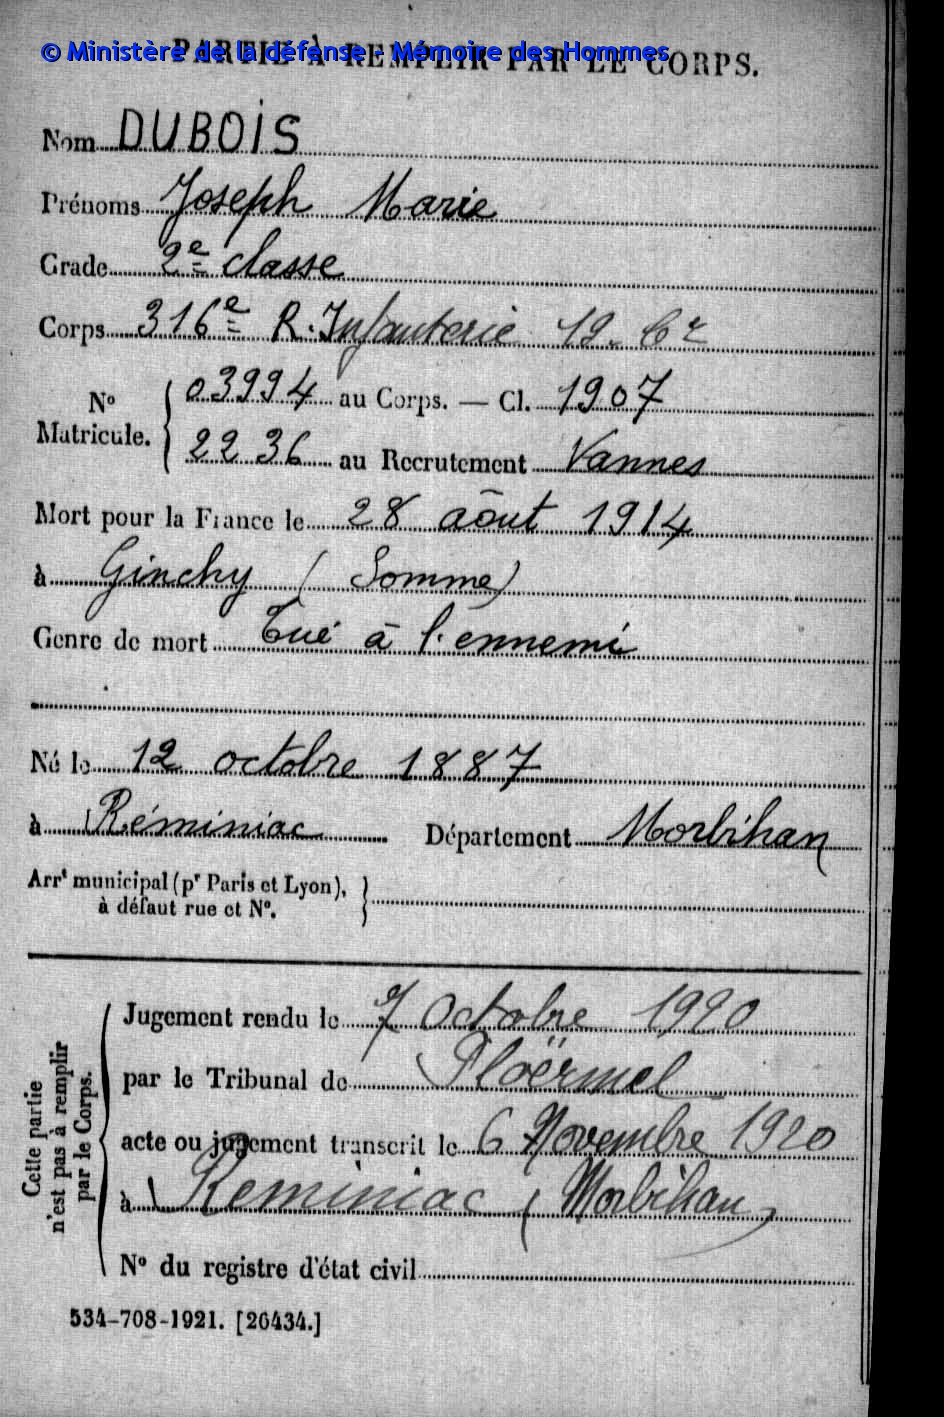 © Ministère de la défense - Mémoire des Hommes
PARTIE À REMPLIR PAR LE CORPS.
Nom DUBOIS
Prénoms Joseph Marie
Grade 2e classe
Corps 316e R. Infanterie 19. Cie
No Matricule. { 03994 au Corps. — Cl. 1907
2236 au Recrutement Vannes
Mort pour la France le 28 août 1914
à Ginchy (Somme)
Genre de mort Tué à l'ennemi
Né le 12 octobre 1887
à Réminiac Département Morbihan
Arrt municipal (pr Paris et Lyon), }
à défaut rue et No.
Cette partie n'est pas à remplir par le Corps.
Jugement rendu le 7 Octobre 1920
par le Tribunal de Ploërmel
acte ou jugement transcrit le 6 Novembre 1920
à Reminiac (Morbihan)
No du registre d'état civil
534-708-1921. [26434.]